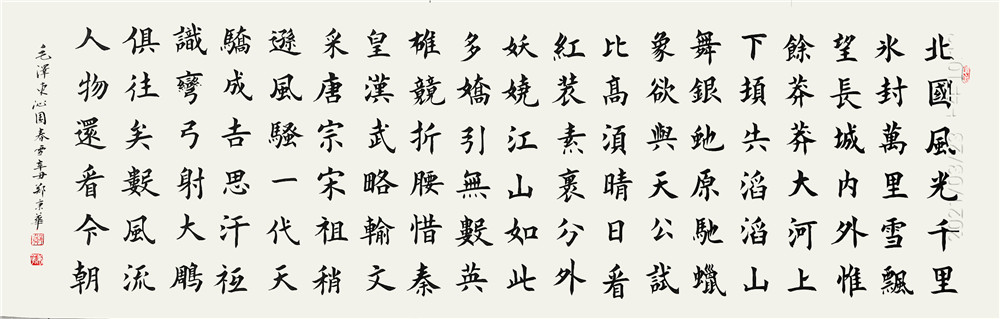 北國風光千里
氷封萬里雪飄
望長城内外惟
餘莽莽大河上
下頓失滔滔山
舞銀虵原馳蠟
象欲與天公試
比髙須晴日看
紅裝素裹分外
妖嬈江山如此
多嬌引無數英
雄競折腰惜秦
皇漢武略輸文
采唐宗宋祖稍
遜風騷一代天
驕成吉思汗祗
識彎弓射大鵰
俱往矣數風流
人物還看今朝
毛澤東沁園春雪辛丑鄭京華
2021/03/23